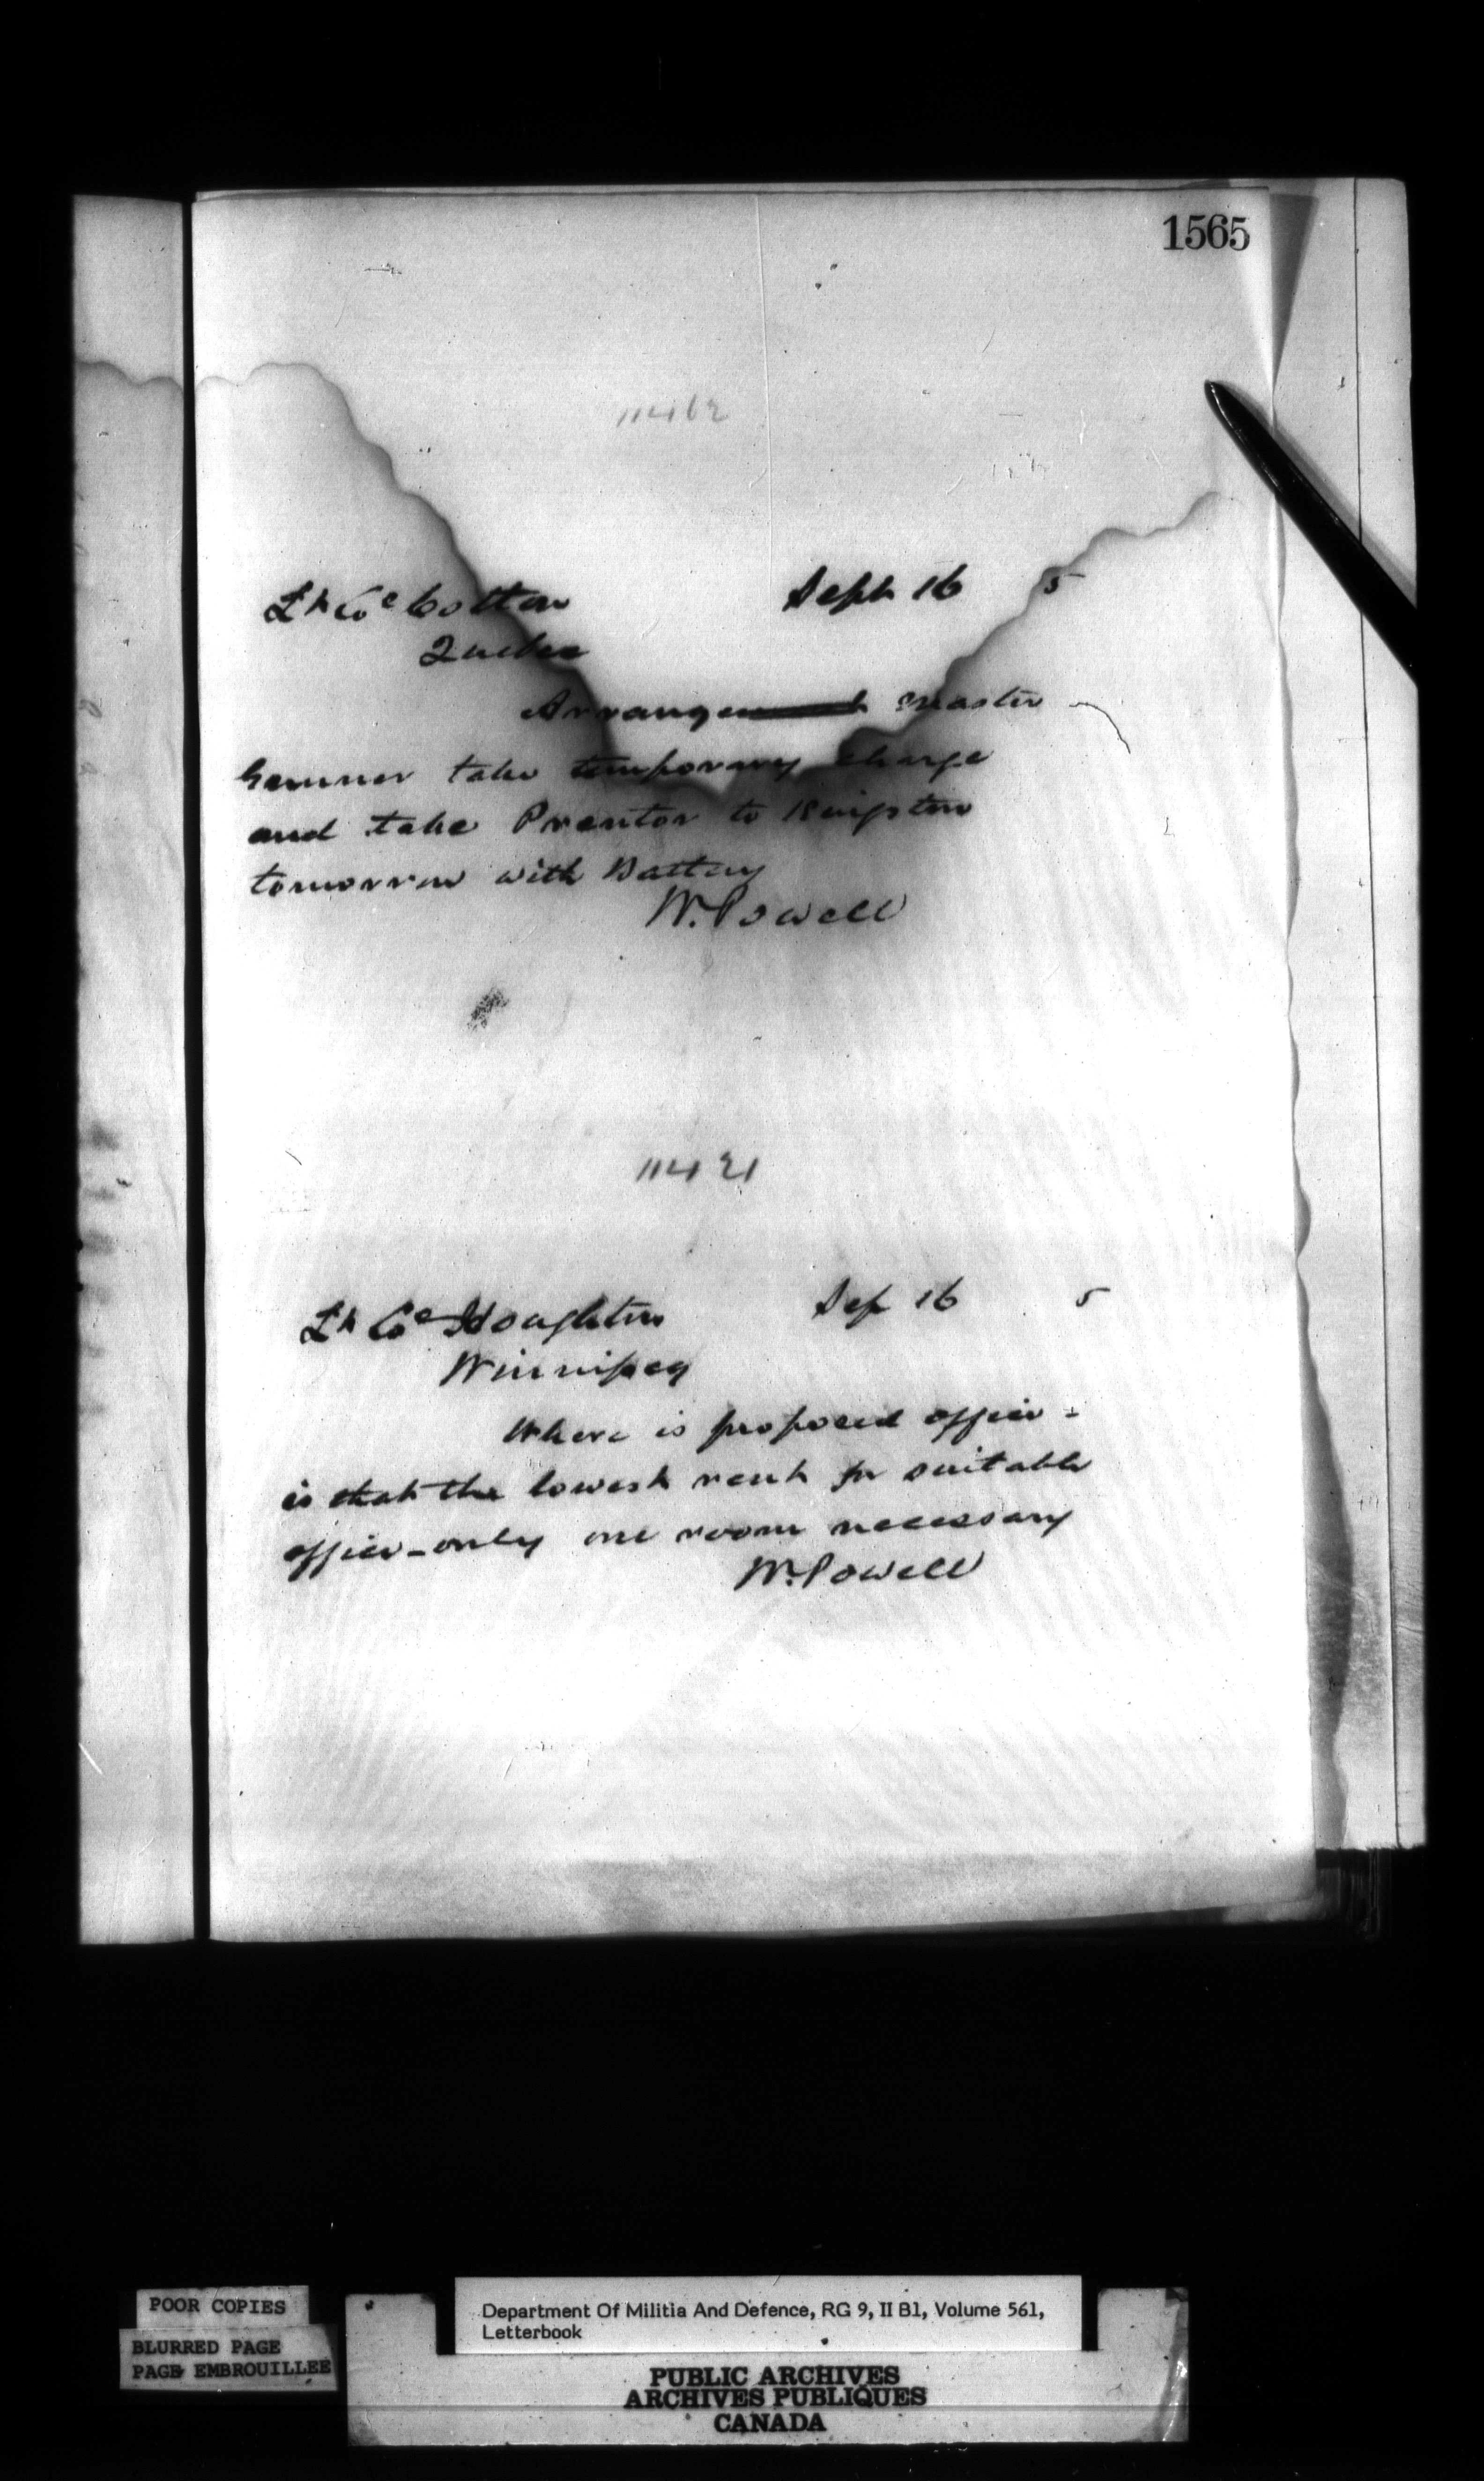 1565
11462
Lt Col Cotton Sept 16 5
Quebec
Arrange Master
Gunner take temporary charge
and take Prenter to Kingston
tomorrow with Battery
W. Powell
11421
Lt Col Houghton Sep 16 5
Winnipeg
Where is proposed office -
is that the lowest rent for suitable
office - only one room necessary
W. Powell
POOR COPIES
BLURRED PAGE
PAGE EMBROUILLEE
Department Of Militia And Defence, RG 9, II B1, Volume 561,
Letterbook
PUBLIC ARCHIVES
ARCHIVES PUBLIQUES
CANADA